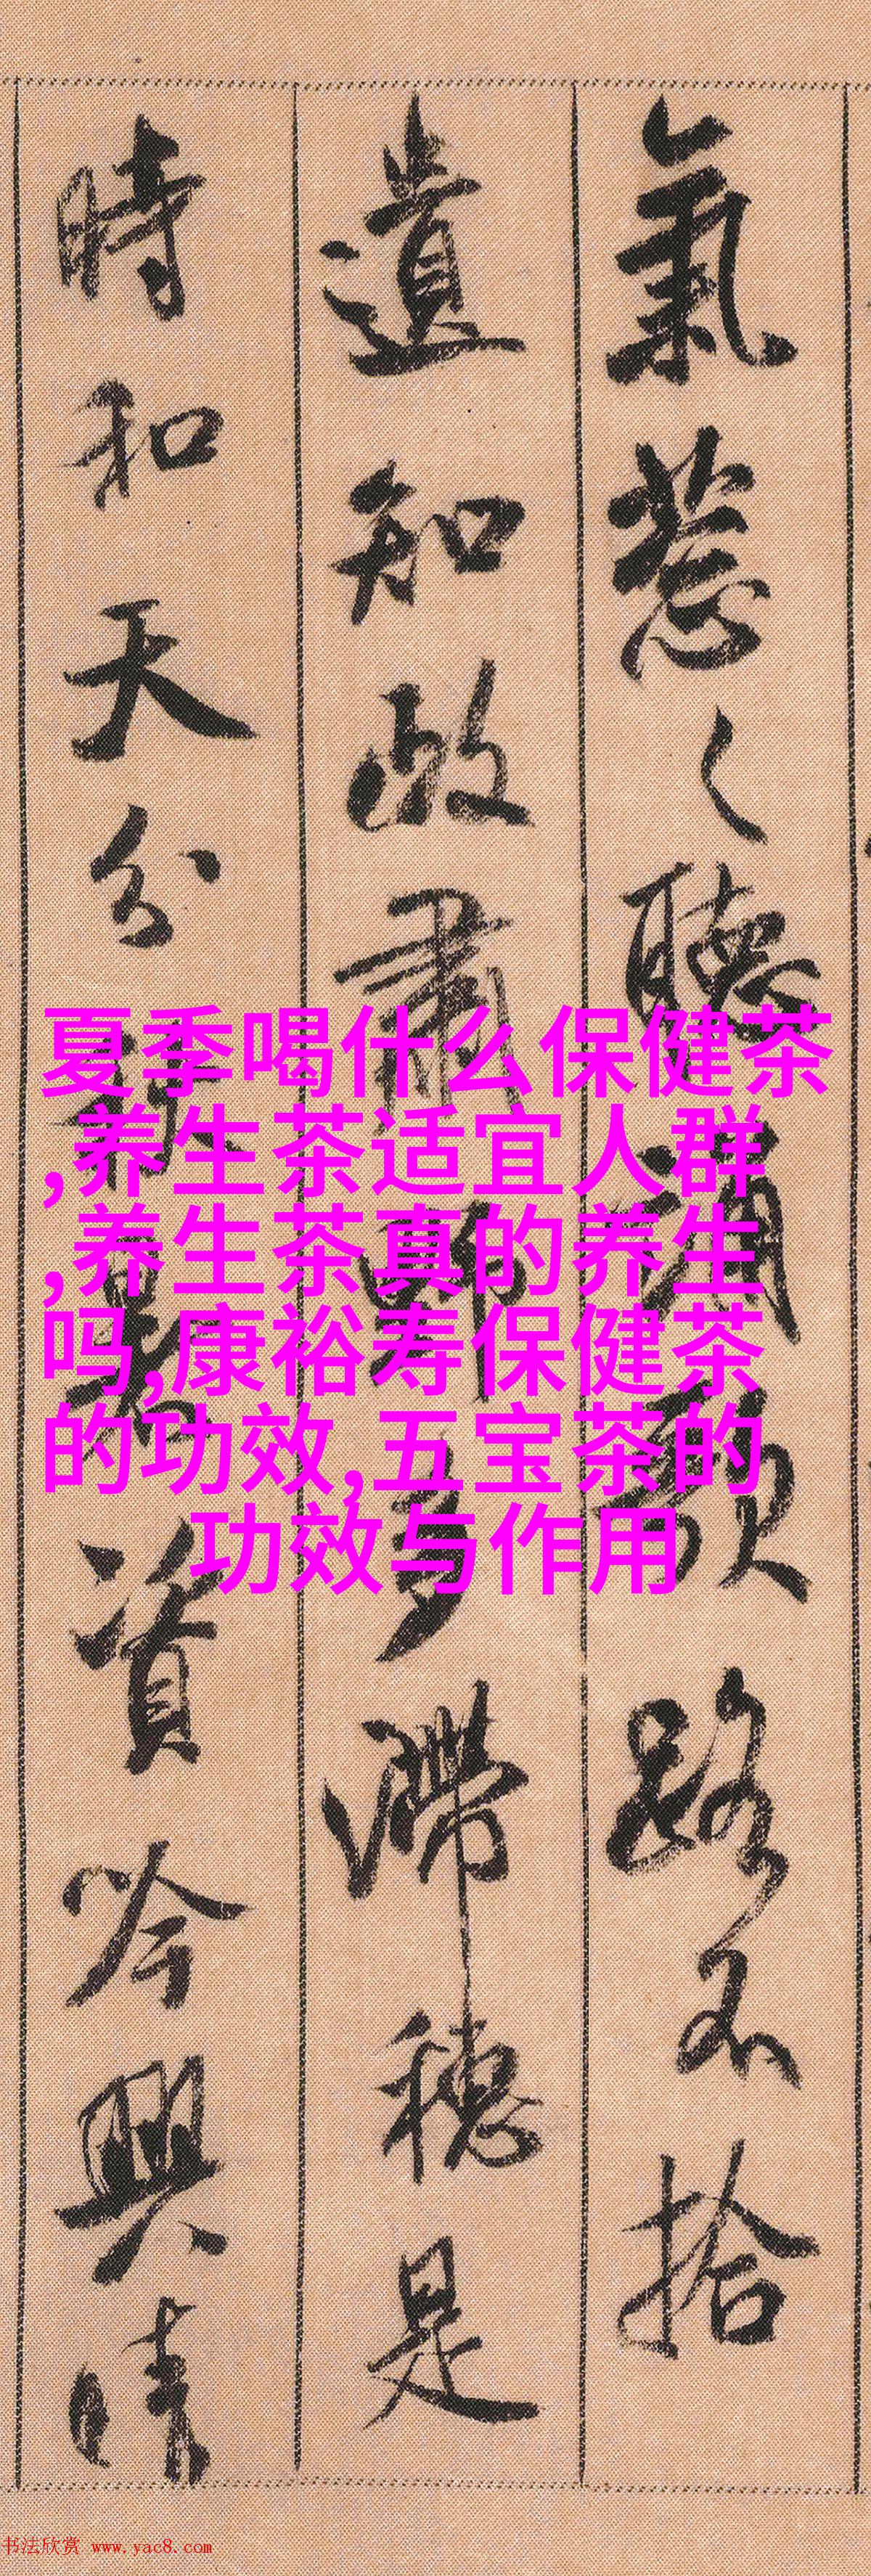 氣葱〻聽誦歌路不拾
遺知政肅野多滯穗是
時和天分秋暑資吟興晴
夏季喝什么保健茶
,养生茶适宜人群
,养生茶真的养生
吗,康裕寿保健茶
的功效,五宝茶的
功效与作用
书法欣赏 www.yac8.com